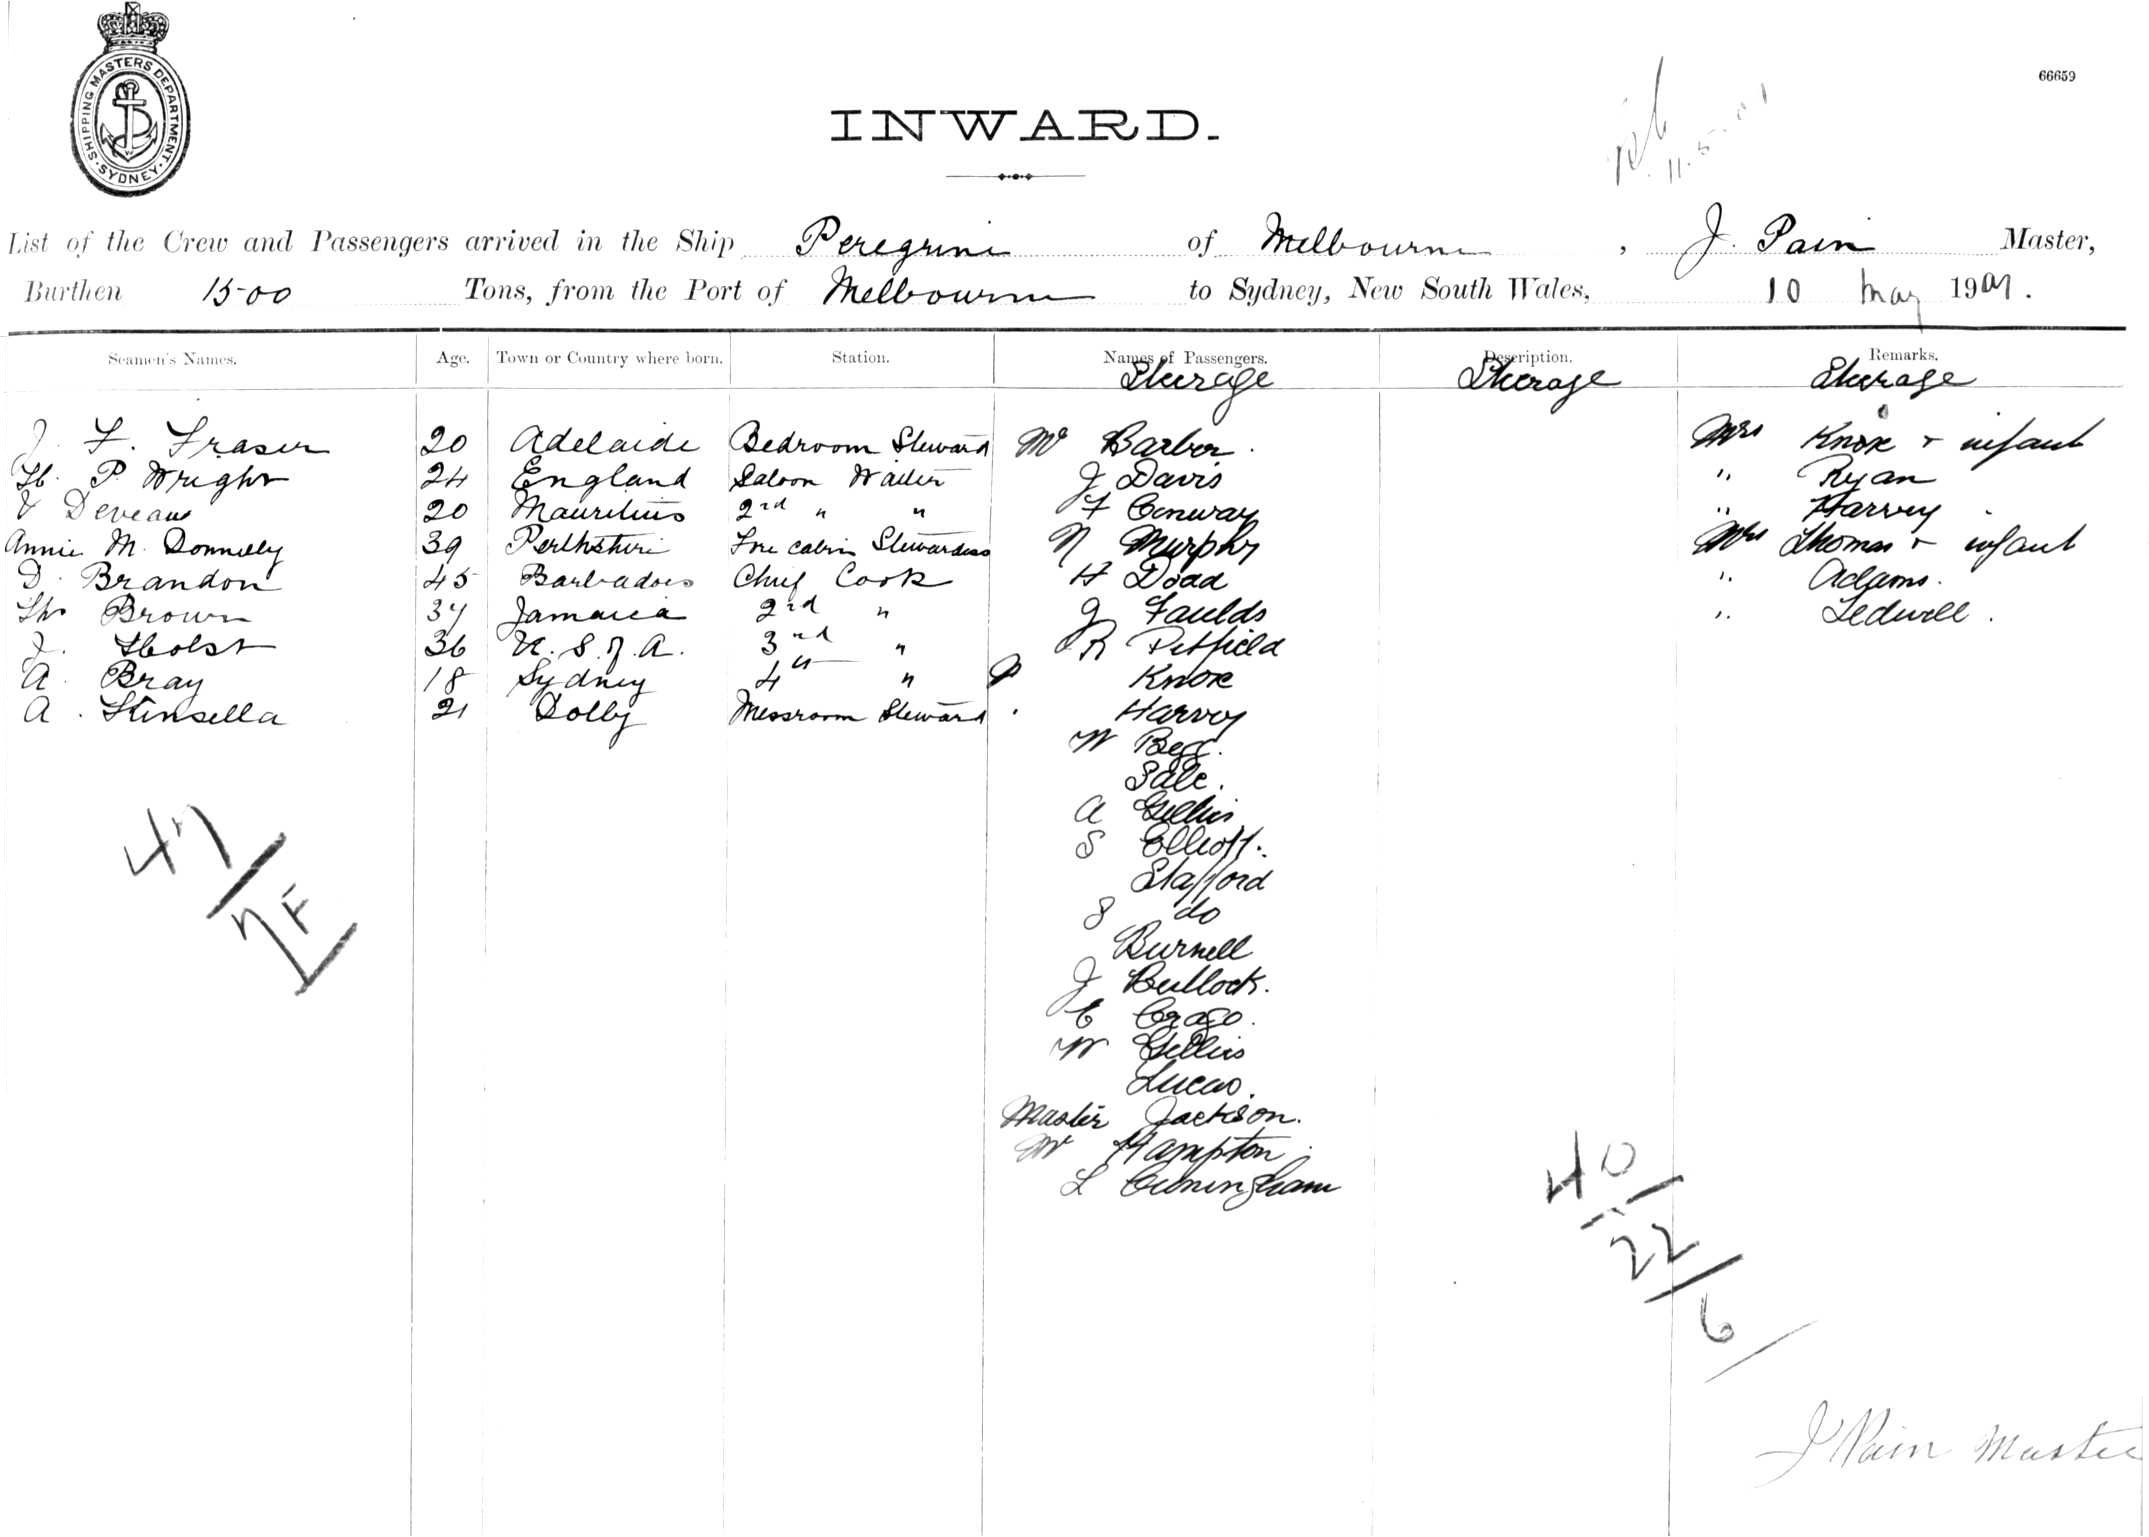 SHIPPING MASTERS DEPARTMENT. SYDNEY
66659
INWARD.
11.5.01
List of the Crew and Passengers arrived in the Ship Peregrine of Melbourne, J. Pain Master,
Burthen 1500 Tons, from the Port of Melbourne to Sydney, New South Wales, 10 May 1901.
Seamen's Names. Age. Town or Country where born. Station. Names of Passengers. Description. Remarks.
Steerage Steerage Steerage
J. F. Fraser 20 Adelaide Bedroom Steward Mr Barber. Mrs Knox + infant
H. P Wright 24 England Saloon Waiter J Davis " Ryan
V Deveaux 20 Mauritius 2nd " " F Conway " Harvey
Annie M. Donnelly 39 Perthshire Fore cabin Stewardess N Murphy Mrs Thomas + infant
D. Brandon 45 Barbadoes Chief Cook H Doad " Adams.
Ths Brown 37 Jamaica 2nd " J Faulds " Ledwell.
J. Holst 36 U. S. of A. 3rd " R Petfield
A. Bray 18 Sydney 4th " Knox
A. Kinsella 21 Dolby Messroom Steward Harvey
W Begg.
Sale.
A Gillies
S Elliott.
Stafford
S do
Burnell
J Bullock.
C Crago.
W Gillies
Lucas.
Master Jackson.
Mr Hampton.
L Cunningham
47
7F
40
22
6
J Pain Master